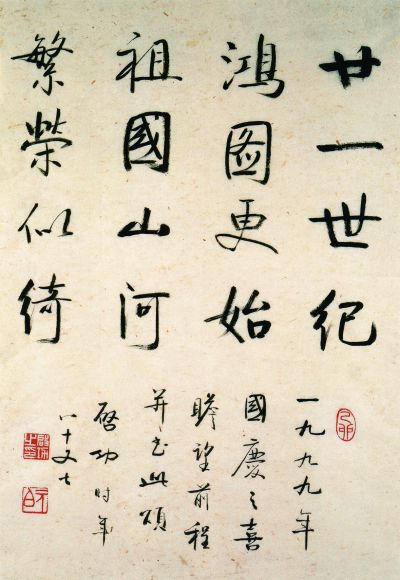 廿一世紀
鴻圖更始
祖國山河
繁榮似綺
一九九九年
國慶之喜
瞻望前程
并書此頌
啓功時年
八十又七
啓功之印
元白